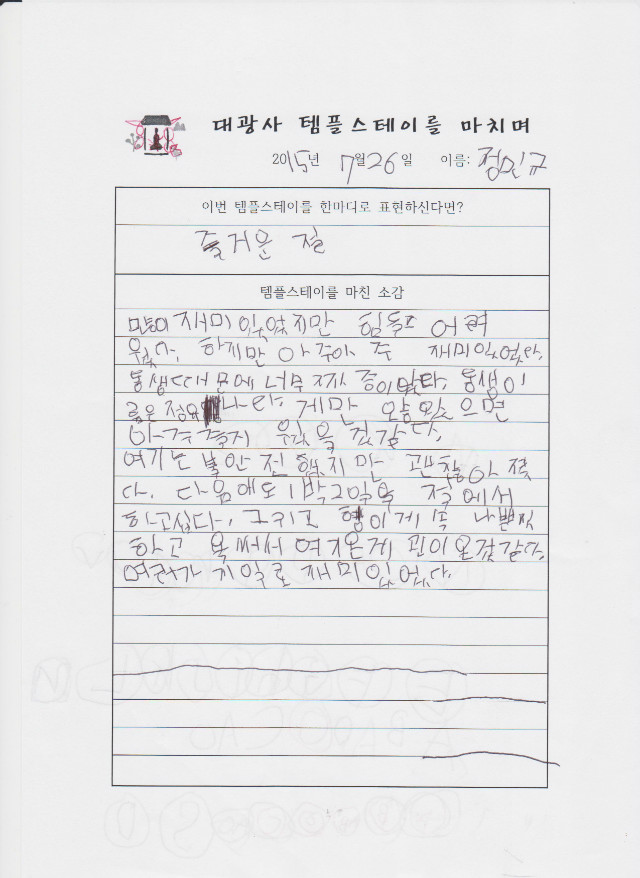 대광사 템플스테이를 마치며
2015년 7월 26일 이름: 정민규
이번 템플스테이를 한마디로 표현하신다면?
즐거운 절
템플스테이를 마친 소감
재미 있었지만 힘들고 어려
웠다. 하지만 아주아 주 재미있었다.
동생때문에 너무 짜증이났다. 동생이
름은 나다. 게만 없으면
아주 즐거 웠을 것같다.
여기는 불안전 했지만 괜찮아 졌
다. 다음에도 1박2일을 절에서
하고십다. 그리고 형이게속 나쁜짓
하고 욕써서 여기온게 괸이온것같다.
여기가 제일로 재미있었다.